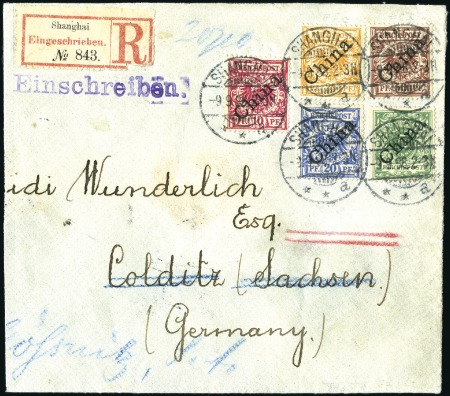 Shanghai
Eingeschrieben.
№ 843.
R
Einschreiben.
REICHSPOST
China
10 PF
China
REICHSPOST
China
50 PF
China
PF 20 PF
China
SHANGHAI
idi Wunderlich
Esq.
Colditz (Sachsen.)
(Germany.)